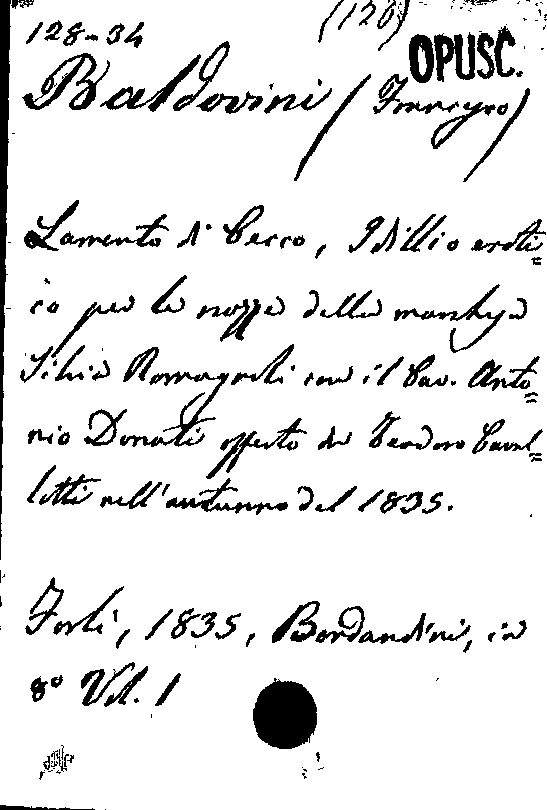 128-34 (120) OPUSC.
Baldovini (Francesco)
Lamento di Cecco, Idillio eroti=
co per le nozze della marchesa
Silvia Romagnoli con il Cav. Anto=
nio Donati offerto da Teodoro Caval=
lotti nell'autunno del 1835.
Forlì, 1835, Bordandini, in
8° Vol. 1